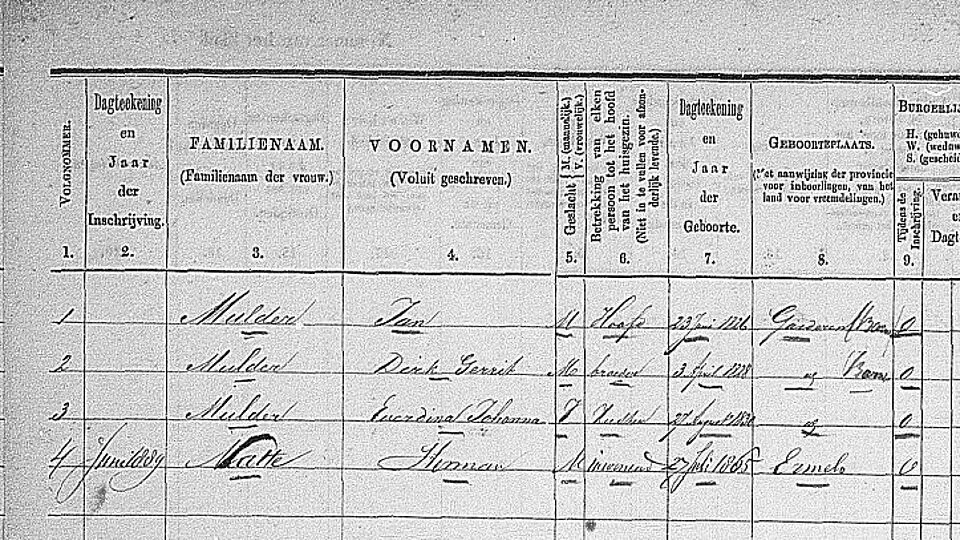 VOLGNOMMER. 1.
Dagteekening en Jaar der Inschrijving. 2.
FAMILIENAAM. (Familienaam der vrouw.) 3.
VOORNAMEN. (Voluit geschreven.) 4.
Geslacht M. (mannelijk.) V. (vrouwelijk.) 5.
Betrekking van elken persoon tot het hoofd van het huisgezin. (Niet in te vullen voor afzonderlijk levende.) 6.
Dagteekening en Jaar der Geboorte. 7.
GEBOORTEPLAATS. (Met aanwijzing der provincie voor inboorlingen, van het land voor vreemdelingen.) 8.
BURGERLIJ
H. (gehuwd
W. (weduw
S. (gescheid
Tijdens de Inschrijving. 9.
Vera
en
Dagt
1 Mulder Jan M Hoofd 23 Juni 1826 Garderen (Barn) O
2 Mulder Dirk Gerrit M broeder 3 April 1828 Barn O
3 Mulder Everdina Johanna V Zuster 27 August 1830 O
4 Juni 1889 Matte Herman M inwonend 27 Juli 1865 Ermelo O